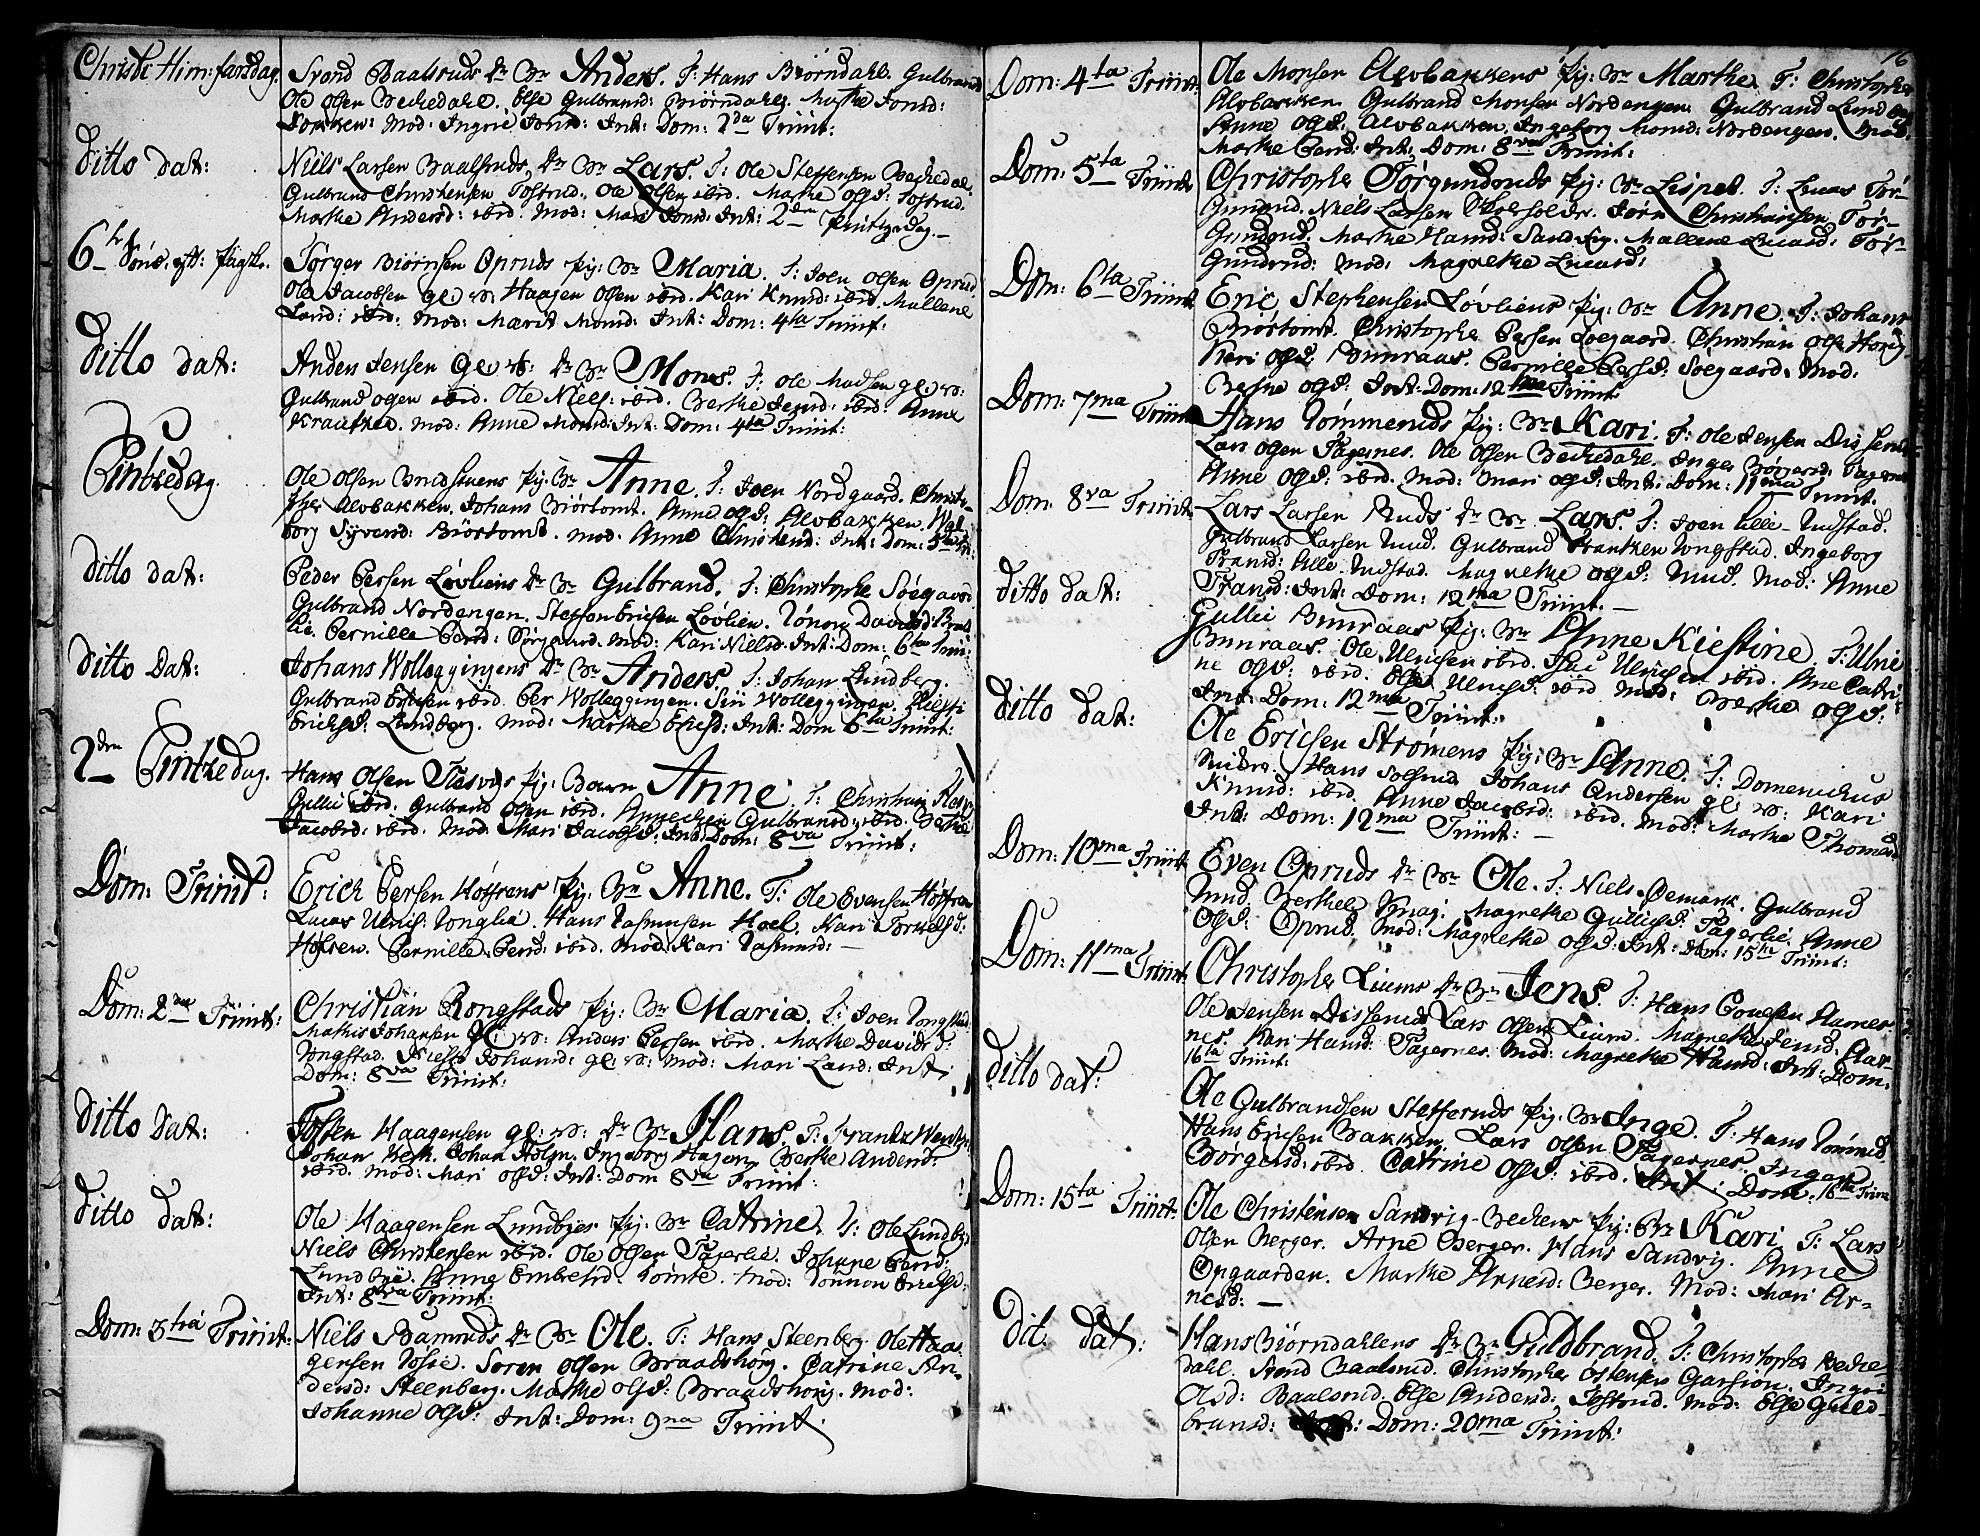 Christi Him: farsdag. Svend Baalsruds dr: Bn Anders. T: Hans Biørndahl. Gulbrand
Ole Olsen Beckedahl. Else Gulbransd: Biørndahls. Marthe Jonsd:
Mod: Ingrie Jonsd: Int: Dom: 2da Trinit:
Ditto dat: Niels Larsen Baalsruds, dr: Bn Lars. T: Ole Steffensen Beckedal.
Gulbrand Christensen Tostrud. Ole Olsen ibid. Marthe Olsd: Tostrud.
Marthe Andersd: ibid. Mod: Mari Jonsd: Int: 2den Pintzedag.
6te Sønd. eft: Paaske. Tørger Biørnsen Opruds pig: Bn Maria. T: Joen Olsen Oprud
Ole Jacobsen gl: w: Haagen Olsen ibid. Kari Knudsd: ibid. Mallene
Land: ibid. Mod: Marit Monsd: Int: Dom: 4ta Trinit:
Ditto dat: Anders Jensen gl: w: dr: Bn Mons. T: Ole Madsen gl: w:
Gulbrand Olsen ibid. Ole Niels: ibid. Berthe Jensd: ibid. Anne
Mod: Anne Monsd: Int: Dom: 4ta Trinit:
Pintzedag. Ole Olsen Bredstuens pig: Bn Anne. T: Joen Nordgaard. Christo-
pher Alvbakken. Johans Biørtomt. Anne Olsd: Alvbakken. Wal-
borg Syversd: Biørtomt. Mod: Anne Christensd: Int: Dom: 5ta Tr:
Ditto dat: Peder Persen Løvliens dr: Bn Gulbrand. T: Christophe Søegaar
Gulbrand Nordengen. Steffen Ericsen Løvlien. Rønou Davidsd:
lie. Pernille Persd: Mod: Kari Nielsd: Int: Dom: 6ta Trin:
Ditto dat: Johans Wolleggingens dr: Bn Anders. T: Johan Lundberg.
Gulbrand Ericsen ibid. Per Wolleggingen. Siri Wolleggingen. Kiesti
Ericksd: Lundberg. Mod: Marthe Ericsd: Int: Dom 6ta Trinit:
2den Pintzedag. Hans Olsen Flesviks pig: Barn Anne. T: Christian Flesv
Gullie ibid. Gulbrand Olsen ibid. Annechen Gulbransd: ibid.
Jacobsd: ibid. Mod: Mari Jacobsd: Int: Dom: 8va Trinit:
Dom: Trinit: Erich Persen Høffrens pig: Bn Anne. T: Ole Evensen Høffren
Lucas Ulrich: Honglia. Hans Rasmusen Hoel. Kari Torkelsd:
Høfren. Pernille Persd: ibid. Mod: Kari Rasmusd:
Dom: 2da Trinit: Christian Rongstads pig: Bn Maria. T: Joen Rongstad
Mathis Johansen gl: w: Anders Persen ibid. Marthe Davidsd:
Rongstad. Kiesti Johansd: gl: w: Mod: Mari Land: Int:
Dom: 8va Trinit:
Ditto dat: Tosten Haagensen gl: w: dr: Bn Hans. T: Frantz
Johan Johan Holm. Ingeborg Hagen. Berthe Andersd:
ibid. Mod: Mari Olsd: Int: Dom 8va Trinit:
Ditto dat: Ole Haagensen Lundbyes pig: Bn Catrine. T: Ole Lundby.
Niels Christensen ibid. Ole Olsen Fagerlie. Johanne Persd:
Lundbye. Anne Embretsd. Tomte. Mod: Rønnou Ericksd:
Int: 8va Trinit:
Dom: 3tia Trinit: Niels Ramruds dr: Bn Ole. T: Hans Steenberg. Ole Haa-
gensen Søren Olsen Braadshørg. Catrine An-
dersd: Steenberg. Marthe Olsd: Braadshorg. Mod:
Johanne Olsd: Int: Dom: 9na Trinit:
16
Dom: 4ta Trinit: Ole Monsen Alvbakkens pig: Bn Marthe. T: Christophe
Alvbakken. Gulbrand Monsen Nordengen. Gulbrand
Anne Olsd: Alvbakken. Ingeborg Monsd: Nordengen. Mod:
Marthe Persd: Int: Dom: 8va Trinit:
Dom: 5ta Trinit: Christophe Tørgunsruds pig: Bn Lispet. T: Lucas Tør-
gunsrud. Niels Larsen Jørn Christiansen Tør-
gunsrud. Marthe Hansd: Sandvig. Mallene Lucasd: Tør-
gunsrud: Mod: Magnethe Lucasd:
Dom: 6ta Trinit: Eric Stephensen Løvliens pig: Bn Anne. T: Johans
Biørtomt. Christophe Persen Søegaard. Christian Olse
Kari Olsd: Bunraas. Pernille Persd: Søegaard. Mod:
Berthe Olsd: Int: Dom: 12ma Trinit:
Dom: 7ma Trinit: Hans Rømmeruds pig: Bn Kari. T: Ole Jensen Dissenrud
Lars Olsen Fagernes. Ole Olsen Beckedahl. Inger Børgersd: Fagernes
Anne Olsd: ibid. Mod: Mari Olsd: Int: Dom: 11ma Trinit:
Dom: 8va Trinit: Lars Larsen Ruds dr: Bn Lars. T: Joen Lille-Rudstad.
Gulbrand Larsen Rud. Gulbrand Frantzen Rongstad. Ingeborg
Fransd: Lille-Rudstad. Magnethe Olsd: Rud. Mod: Anne
Fransd: Int: Dom: 12ma Trinit:
Ditto dat: Gullic Bunraas pig: Bn Anne Kiestine. T: Ulric
Bunraas. Ole Ulricsen ibid. Ulricsen ibid. Ane Catri-
ne Olsd: ibid. Else Ulricsd: ibid Mod: Berthe Olsd:
Int: Dom: 12ma Trinit:
Ditto dat: Ole Ericsen Strømens pig: Bn Anne. T: Domenichus
Hans Solsrud. Johans Andersen gl: w: Kari
Knudsd: ibid. Anne Jacobsd: ibid. Mod: Marthe Thomasd
Int: Dom: 12ma Trinit:
Dom: 10ma Trinit: Even Opruds dr: Bn Ole. T: Niels Pemark. Gulbrand
Rud. Berthel Knag. Magnethe Gullicsd: Fagerlie. Anne
Olsd: Oprud. Mod: Magnethe Olsd: Int: Dom: 15ta Trinit:
Dom: 11ma Trinit: Christophe Liums dr: Bn Jens. T: Hans Povelsen Hasnes
Ole Jensen Dissenrud Lars Olsen Lium. Magnethe Jensd: Has-
nes. Kari Hansd: Fagernes. Mod: Magnethe Hansd: Int: Dom:
16ta Trinit:
Ditto dat: Ole Gulbrandsen Stefferuds pig: Bn Inge. T: Hans Rømmerud
Hans Ericsen Bakken. Lars Olsen Fagernes. Inger
Børgersd: ibid. Catrine Olsd: ibid. Int: Dom: 16ta Trinit
Dom: 15ta Trinit: Ole Christensen Sandvig-Beckens pig: Bn Kari T: Lars
Olsen Berger. Arne Berger. Hans Sandvig. Anne
Opgaarden. Marthe Arnesd: Berger. Mod: Mari Ar-
nesd:
Dit: dat: Hans Biørndahlens dr: Bn Guldbrand. T: Christophe Becke-
dahl. Svend Baalsrud. Christopher Ostensen Garsion. Ingri
Olsd: Baalsrud. Else Andersd: Tostrud. Mod: Else Guld-
bransd: Int: Dom: 20ma Trinit: